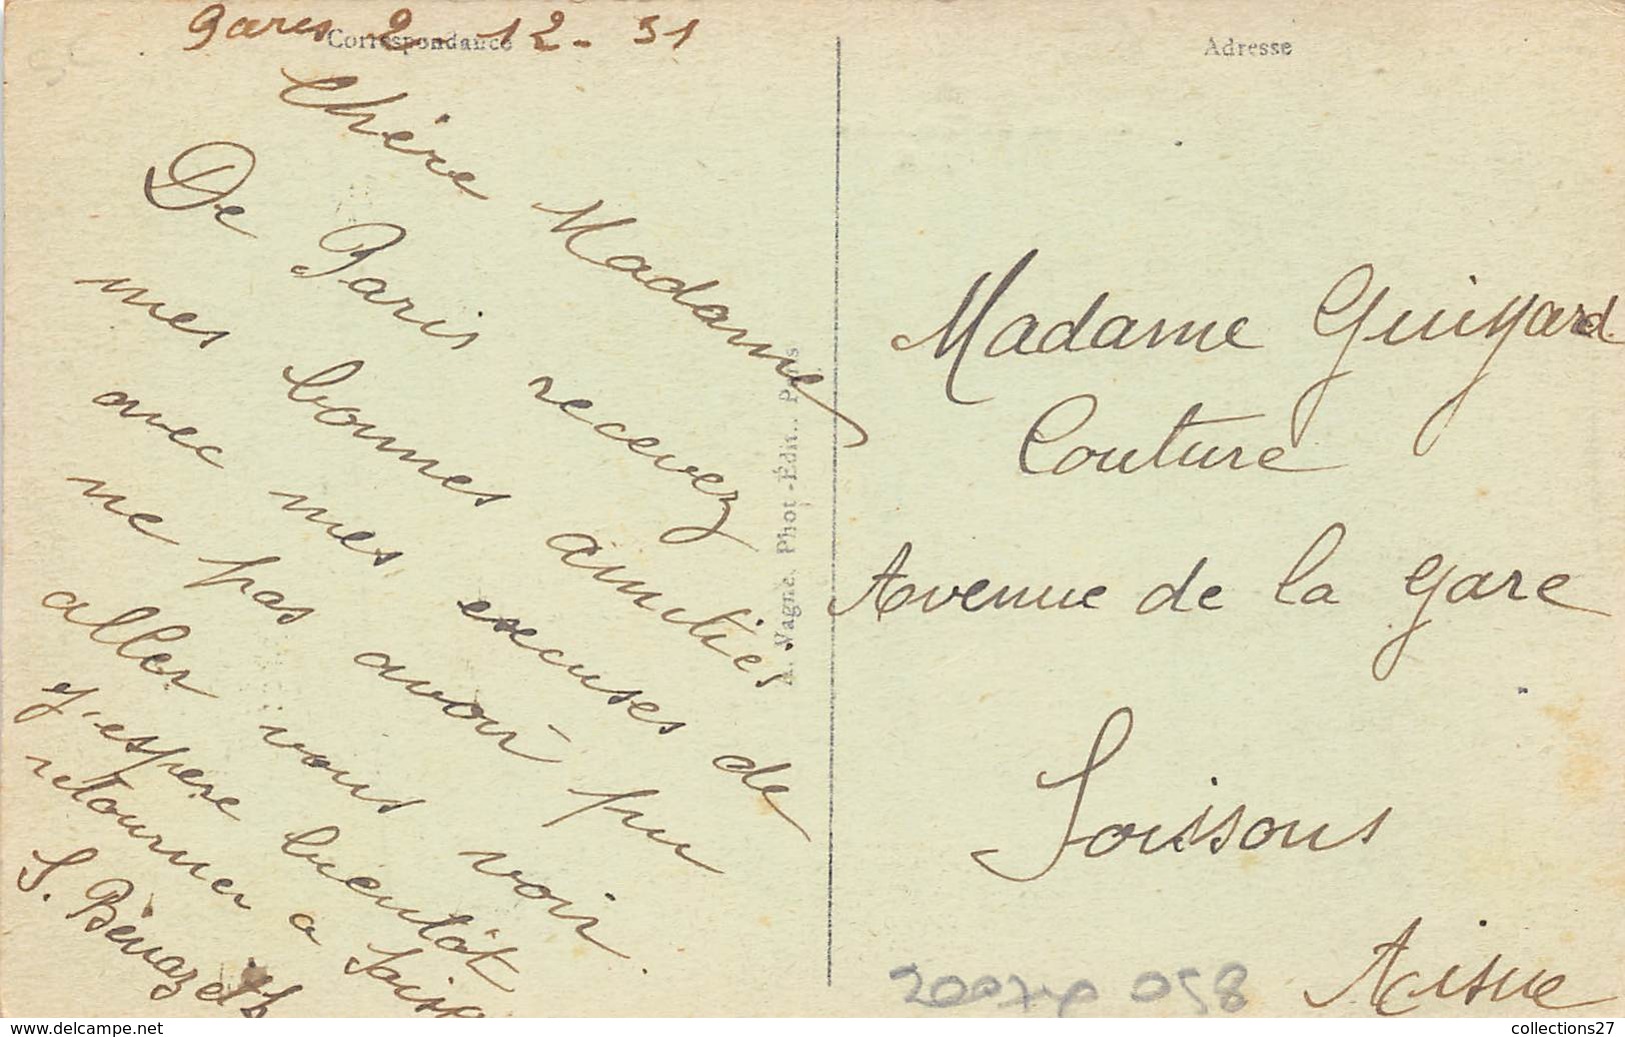 Paris 2 - 12 - 31
Correspondance
Chère Madame
De Paris recevez
mes bonnes amitiés
avec mes excuses de
ne pas avoir pu
aller vous voir.
j'espere bientôt
retourner a Soiss
S. Bénazeth
A. Wagne, Phot-Édit., Paris
Adresse
Madame Guyard
Couture
Avenue de la gare
Soissons
Aisne
058
collections27